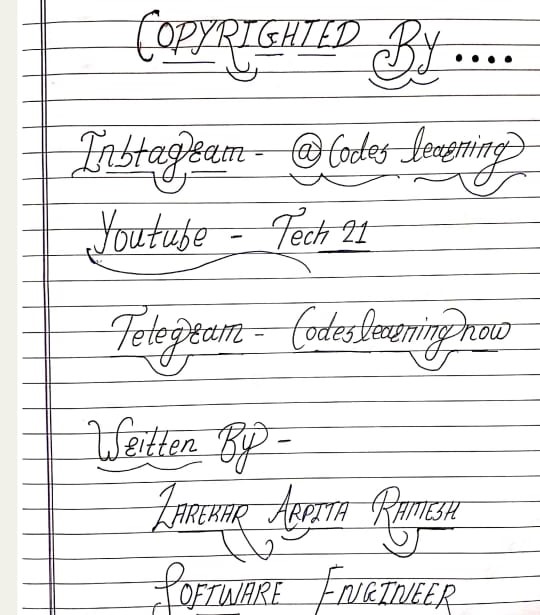 COPYRIGHTED By ....
Instagram - @Codes learning
Youtube - Tech 21
Telegram - Codeslearningnow
Written By -
ZAREKAR ARPITA RAMESH
SOFTWARE ENGINEER